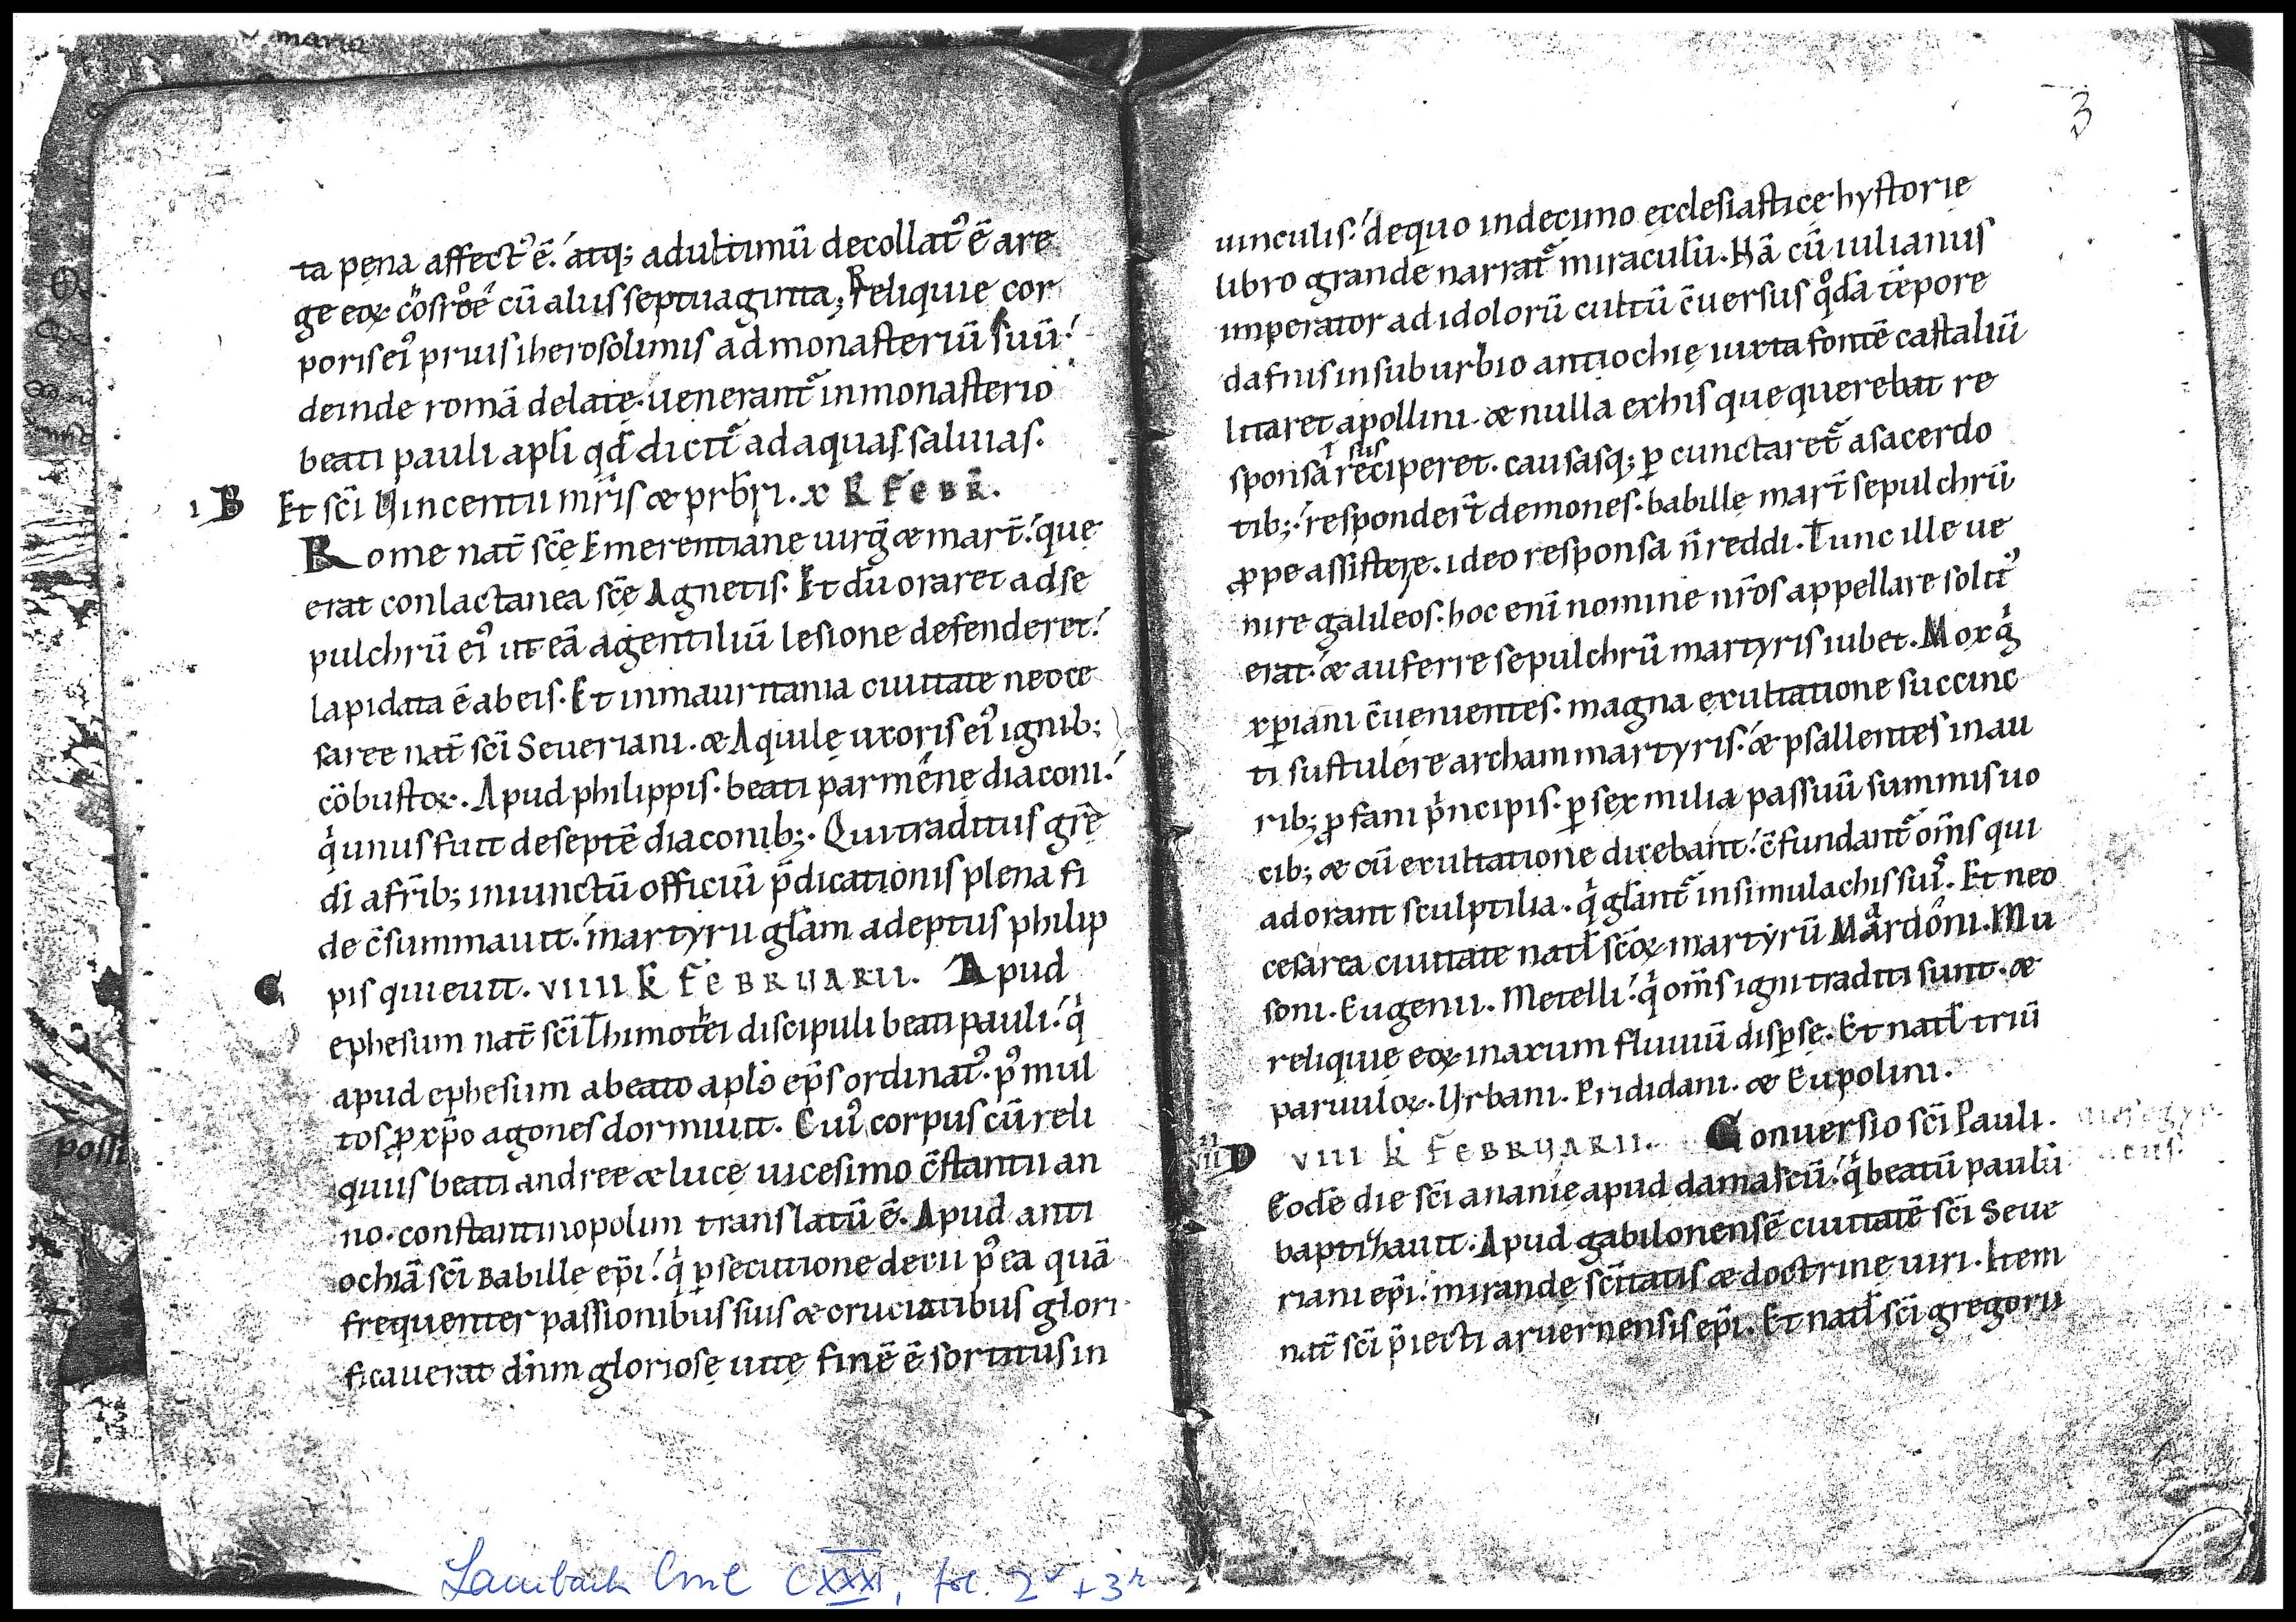 ta pena affect᾿ ē. atq; adultimū decollat᾿ ē a re
ge eoꝝ cosroe cū aliis septuaginta; Reliquie cor
poris ei᾿ prius iherosolimis ad monasteriū suū.
deinde romā delatę. uenerant᾿ in monasterio
beati pauli apłi qđ dicit᾿ ad aquas saluias.
B Et sc̄i Vincentii mr̄is ⁊ prb̄ri. x K FEBR̄.
Rome nat̄ sc̄ę Emerentianę uirḡ ⁊ mart̄. quę
erat conlactanea sc̄ę Agnetis. Et dū oraret ad se
pulchrū ei᾿ ut eā a gentiliū lesione defenderet.
lapidata ē ab eis. Et in mauritania ciuitate neoce
saree nat̄ sc̄i Seueriani. ⁊ Aquilę uxoris ei᾿ ignib;
cōbustoꝝ. Apud philippis. beati parmenę diaconi.
qͥ unus fuit de septē diaconib;. Qui traditus grē
dī a fr̄ib; iniunctū officiū p̄dicationis plena fi
de c̄summauit. martyrii głam adeptus philip
C pis quieuit. VIIII K FEBRUARII. Apud
ephesum nat̄ sc̄i Thimothei discipuli beati pauli. qͥ
apud ephesum a beato apło ep̄s ordinat᾿. p᾿ mul
tos ꝓ xp̄o agones dormiuit. Cui᾿ corpus cū reli
quiis beati andree ⁊ lucę uicesimo c̄stantii an
no. constantinopolim translatū ē. Apud anti
ochiā sc̄i Babillę ep̄i. qͥ ꝑsecutione decii p᾿ea quā
frequenter passionibus suis ⁊ cruciatibus glori
ficauerat dn̄m gloriosę uitę finē ē sortitus in
3
uinculis. de quo in decimo ecclesiastice hystorie
libro grande narrat᾿ miraculū. Nā cū iulianus
imperator ad idolorū cultū c̄uersus qͦdā tēpore
dafnis in suburbio antiochię iuxta fontē castaliū
litaret apollini. ⁊ nulla ex his que querebat re
sponsa reciperet. causasq; ꝑcunctaret᾿ a sacerdo
tib;. responder̄t demones. babillę mart̄ sepulchrū
ꝓpe assistere. ideo responsa n̄ reddi. Tunc ille ue
nire galileos. hoc enī nomine nr̄os appellare solit᾿
erat. ⁊ auferre sepulchrū martyris iubet. Mox gͥ
xp̄iani c̄uenientes. magna exultatione succinc
ti sustulere archam martyris. ⁊ psallentes in au
rib; ꝓfani pͥncipis. ꝑ sex milia passuū summis uo
cib; ⁊ cū exultatione dicebant. c̄fundant᾿ om̄s qui
adorant sculptilia. qͥ głant᾿ in simulachis suis. Et neo
cesarea ciuitate natł sc̄oꝝ martyrū Mardoni. Mu
soni. Eugenii. Metelli. qͥ om̄s igni traditi sunt. ⁊
reliquię eoꝝ in axum fluuiū disꝑsę. Et natł triū
paruuloꝝ. Urbani. Prididani. ⁊ Eupolini.
D VIII K FEBRUARII. Conuersio sc̄i Pauli.
Eodē die sc̄i ananie apud damascū. qͥ beatū paulū
baptizauit. Apud gabilonensē ciuitatē sc̄i Seue
riani ep̄i. mirandę sc̄itatis ⁊ doctrinę uiri. Item
nat̄ sc̄i p̄iecti aruernensis ep̄i. Et natł sc̄i gregorii
Lambach Cml CXXXI, fol. 2v + 3r